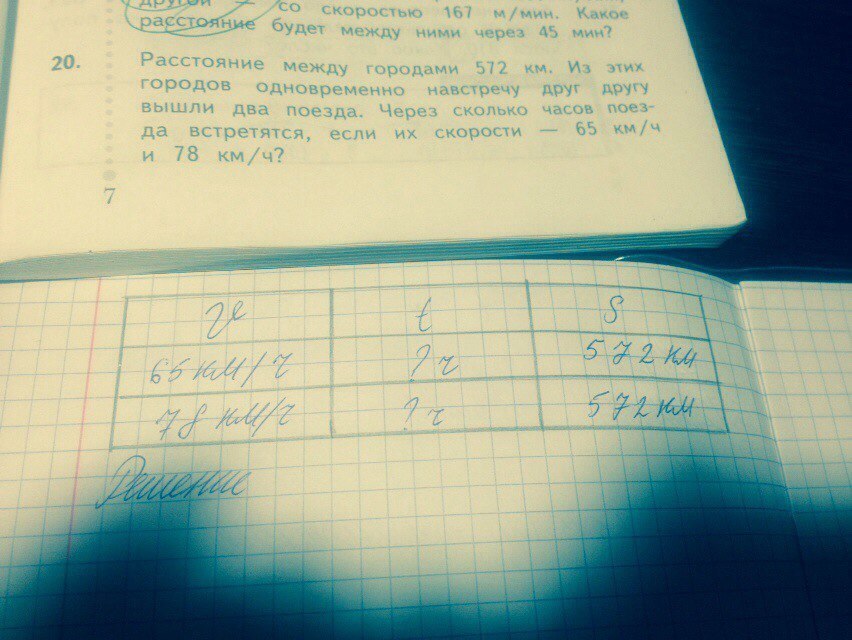 другой — со скоростью 167 м/мин. Какое
расстояние будет между ними через 45 мин?
20. Расстояние между городами 572 км. Из этих
городов одновременно навстречу друг другу
вышли два поезда. Через сколько часов поез-
да встретятся, если их скорости — 65 км/ч
и 78 км/ч?
7
V t S
65 км/ч ? ч 572 км
78 км/ч ? ч 572 км
Решение